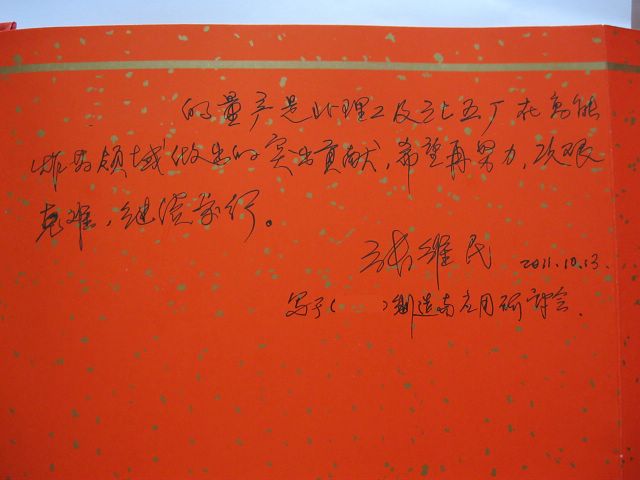 的量产是北理工及三七五厂在高能
炸药领域做出的突出贡献,希望再努力,攻艰
克难,继续前行。
张维民 2011.10.13.
写于( )制造与应用研讨会.